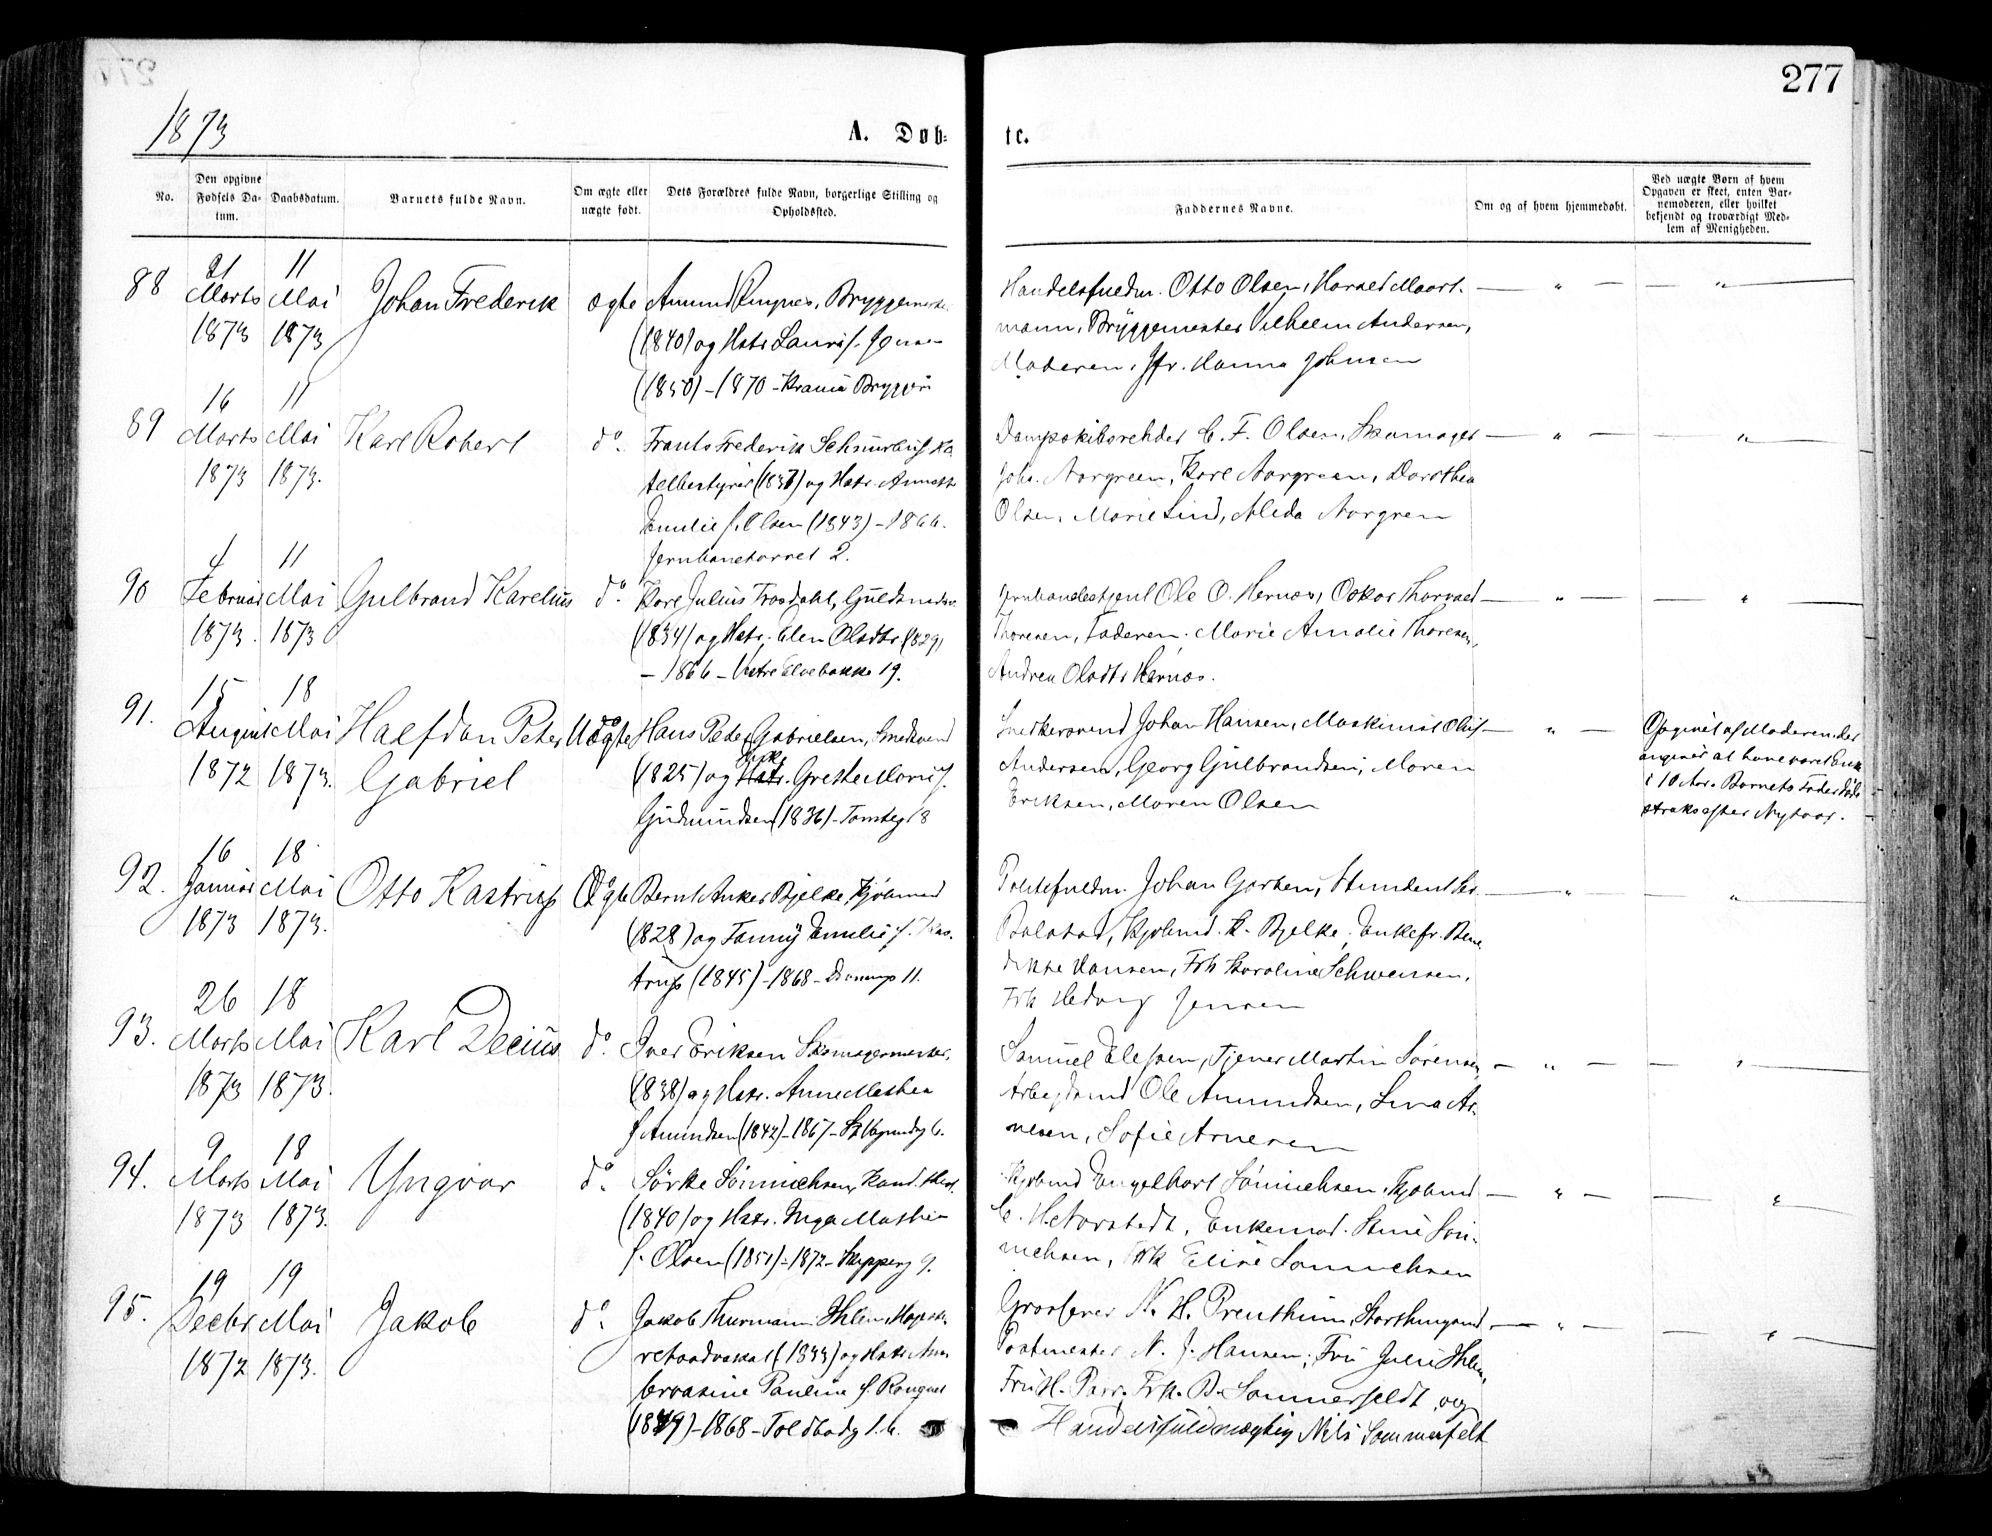 277
1873
A. Døb-
te.
No.
Den opgivne Fødsels Da-tum.
Daabsdatum.
Barnets fulde Navn.
Om ægte eller uægte født.
Dets Forældres fulde Navn, borgerlige Stilling og Opholdssted.
Faddernes Navne.
Om og af hvem hjemmedøbt.
Ved uægte Børn af hvem Opgaven er skeet, enten Bar-nemoderen, eller hvilket bekjendt og troværdigt Med-lem af Menigheden.
88
21 Marts 1873
11 Mai 1873
Johan Frederik
ægte
Amund Ringnes, Bryggemester
(1840) og Hstr Lauri f.
(1850) - 1870 - Krania Bryggeri
Handelsfuldm. Otto Olsen, Harald Moort-
mann, Bryggemester Vilhelm Andersen,
Moderen, Jfr. Hanna Johnsen
89
16 Marts 1873
11 Mai 1873.
Karl Robert
do.
Frants Frederik Schnurbusch
(1837) og Hstr. Annette
Emilie f. Olsen (1843) - 1866.
Jernbanetorvet 2.
Dampskibsexpeditør C. F. Olsen, Skomager
Johs. Norgreen, Karl Norgreen, Dorothea
Olsen, Marie Lind, Alida Norgren
90
4 Februar 1873.
11 Mai 1873
Gulbrand Karelius
do.
Karl Julius Trosdahl, Guldsmedsv.
(1834) og Hstr. Elen Olsdtr (1829)
- 1866 - Vestre Elvebakke 19.
Jernbanebetjent Ole O. Hernæs, Oskar Thorvald
Thoresen, Faderen. Marie Amalie Thoresen,
Andrea Olsdtr Hernæs.
91.
15 August 1872
18 Mai 1873.
Halfdan Peter
Gabriel
Uægte
Hans Peder Gabrielsen, Smedsvend
(1825) og Grethe Marie f.
Gudmundsen (1836) - Tomtegt 8
Snedkersvend Johan Hansen, Maskinist Oluf
Andersen, Georg Gulbrandsen, Maren
Eriksen, Maren Olsen
Opgivet af Moderen, der
angiver at have været Enke
i 10 Aar. Barnets Fader døde
straks efter Nytaar.
92.
16 Januar 1873
18 Mai 1873.
Otto Kastrup
Ægte
Bernt Anker Bjelke, Kjøbmand
(1828) og Fanny Emilie f. Kas-
trup (1845) - 1868 - 11.
Politifuldm. Johan Gjersen, Student
Kjøbmd. K. Bjelke, Enkefr. Bene-
dikte Hansen, Frk Karoline Schwensen,
Frk Hedvig Jensen
93.
26 Marts 1873
18 Mai 1873.
Karl Decius
do.
Iver Eriksen Skomagermester,
(1838) og Hstr. Anne Mathea
f Amundsen (1842) - 1867 - 6.
Samuel Ellefsen, Tjener Martin Sørensen,
Arbeidsmd Ole Amundsen, Lina Ar-
nesen, Sofie Arnesen
94.
9 Marts 1873
18 Mai 1873.
Yngvar
do.
Sørke Sönnichsen, Kand. theol.
(1840) og Hstr. Inga Mathea
f. Olsen (1851) - 1872 - Skipperg 9.
Kjøbmd Engelhart Sönnichsen, Kjøbmd
C. H. Norstedt, Enkemad. Stine Sön-
nichsen, Frk Elise Sönnichsen
95.
19 Decbr 1872
19 Mai 1873.
Jakob
do.
Jakob Thurmann Ihlen, Høieste-
retsadvokat (1833) og Hstr. Am-
brosine Pauline f. Rouquet
(1849) - 1868 - Toldbodg 1.b.
Grosserer N. H. Prenthun, Storthingsmd,
Postmester N. J. Hansen, Fru Julie Ihlen,
Fru H. Parr, Frk. B. Sommerfeldt og
Handelsfuldmægtig Nils Sommerfelt